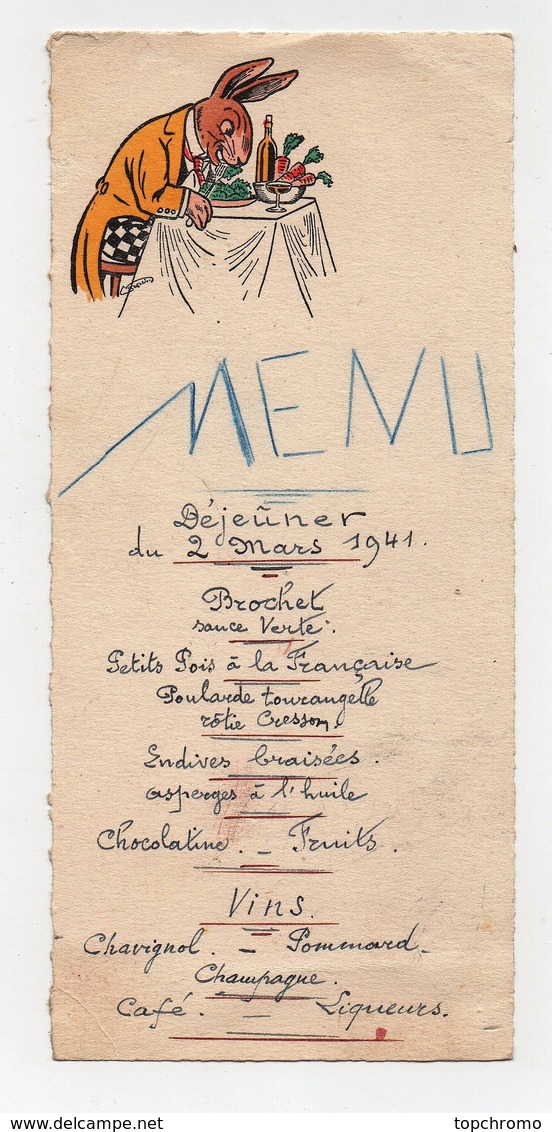 MENU
Déjeûner
du 2 Mars 1941.
Brochet
sauce Verte.
Petits Pois à la Française
Poularde tourangelle
rôtie Cresson.
Endives braisées.
asperges à l'huile
Chocolatine. - Fruits.
Vins.
Chavignol. - Pommard.
Champagne.
Café. - Liqueurs.
www.delcampe.net
topchromo